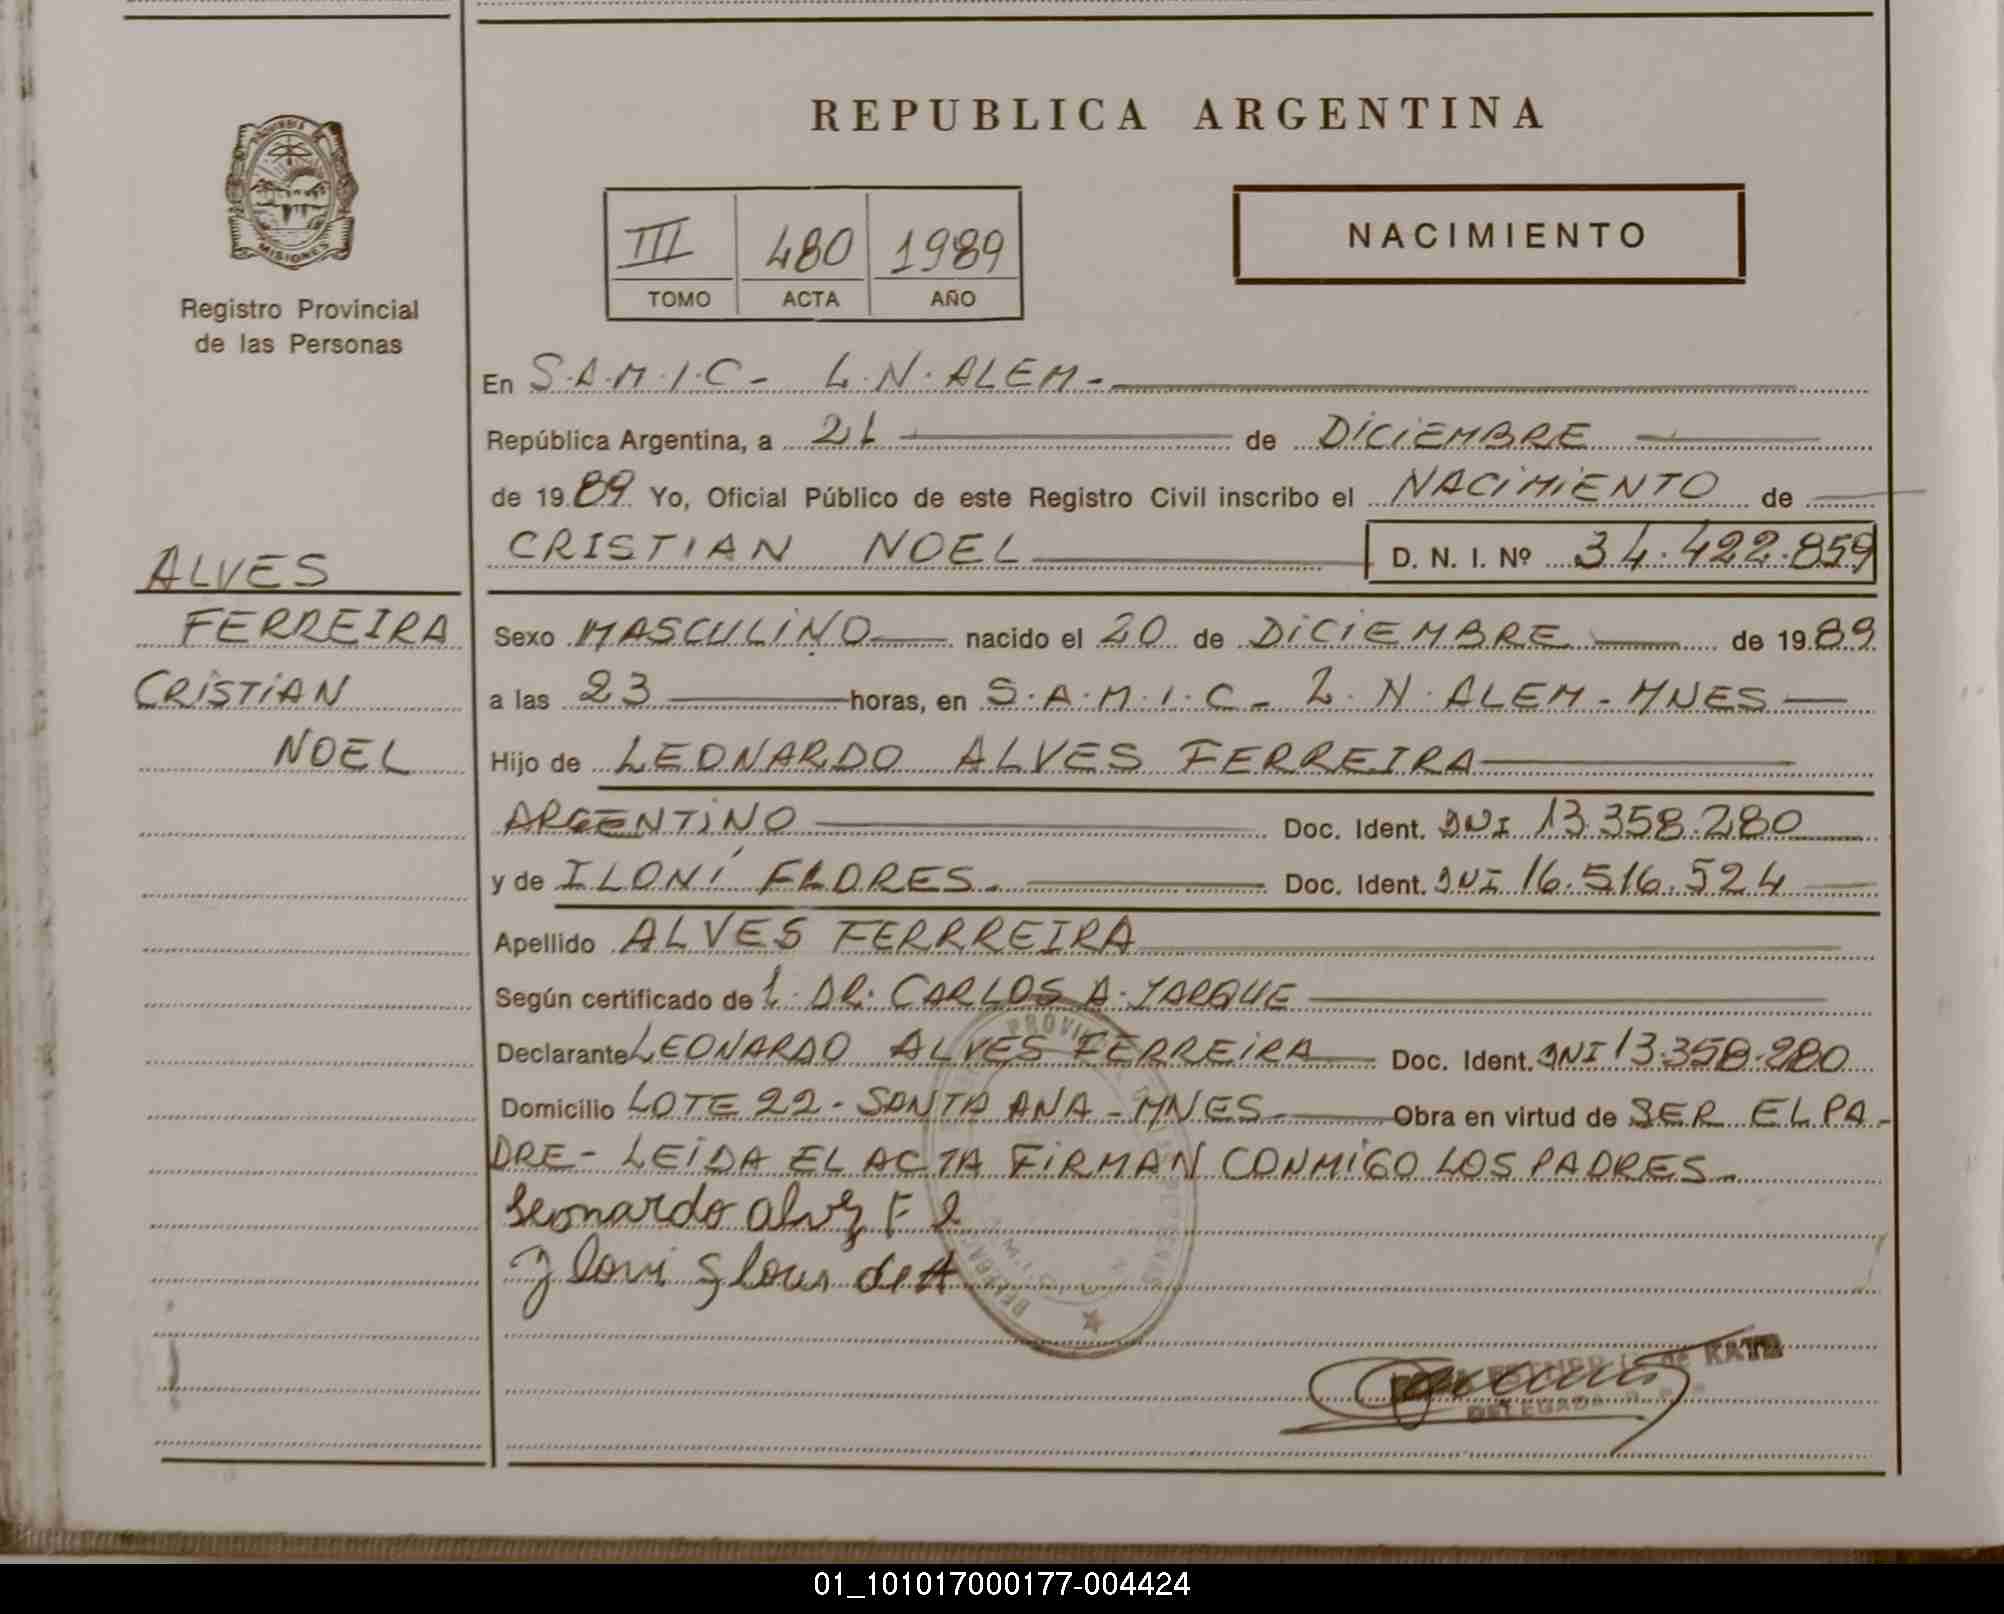 REPUBLICA ARGENTINA
MISIONES
Registro Provincial
de las Personas
III 480 1989
TOMO ACTA AÑO
NACIMIENTO
En S.A.M.I.C - L.N. ALEM -
República Argentina, a 21 de DICIEMBRE
de 19 89 Yo, Oficial Público de este Registro Civil inscribo el NACIMIENTO de
CRISTIAN NOEL D. N. I. Nº 34.422.859
ALVES
FERREIRA
CRISTIAN
NOEL
Sexo MASCULINO nacido el 20 de DICIEMBRE de 19 89
a las 23 horas, en S.A.M.I.C - L.N. ALEM - MNES
Hijo de LEONARDO ALVES FERREIRA
ARGENTINO Doc. Ident. DNI 13.358.280
y de ILONÍ FLORES. Doc. Ident. DNI 16.516.524
Apellido ALVES FERRREIRA
Según certificado de L. DR. CARLOS A.
Declarante LEONARDO ALVES FERREIRA Doc. Ident. DNI 13.358.280
Domicilio LOTE 22 - SANTA ANA - MNES Obra en virtud de SER EL PA-
DRE - LEIDA EL ACTA FIRMAN CONMIGO LOS PADRES
Leonardo
de KATZ
DELEGADA
01_101017000177-004424